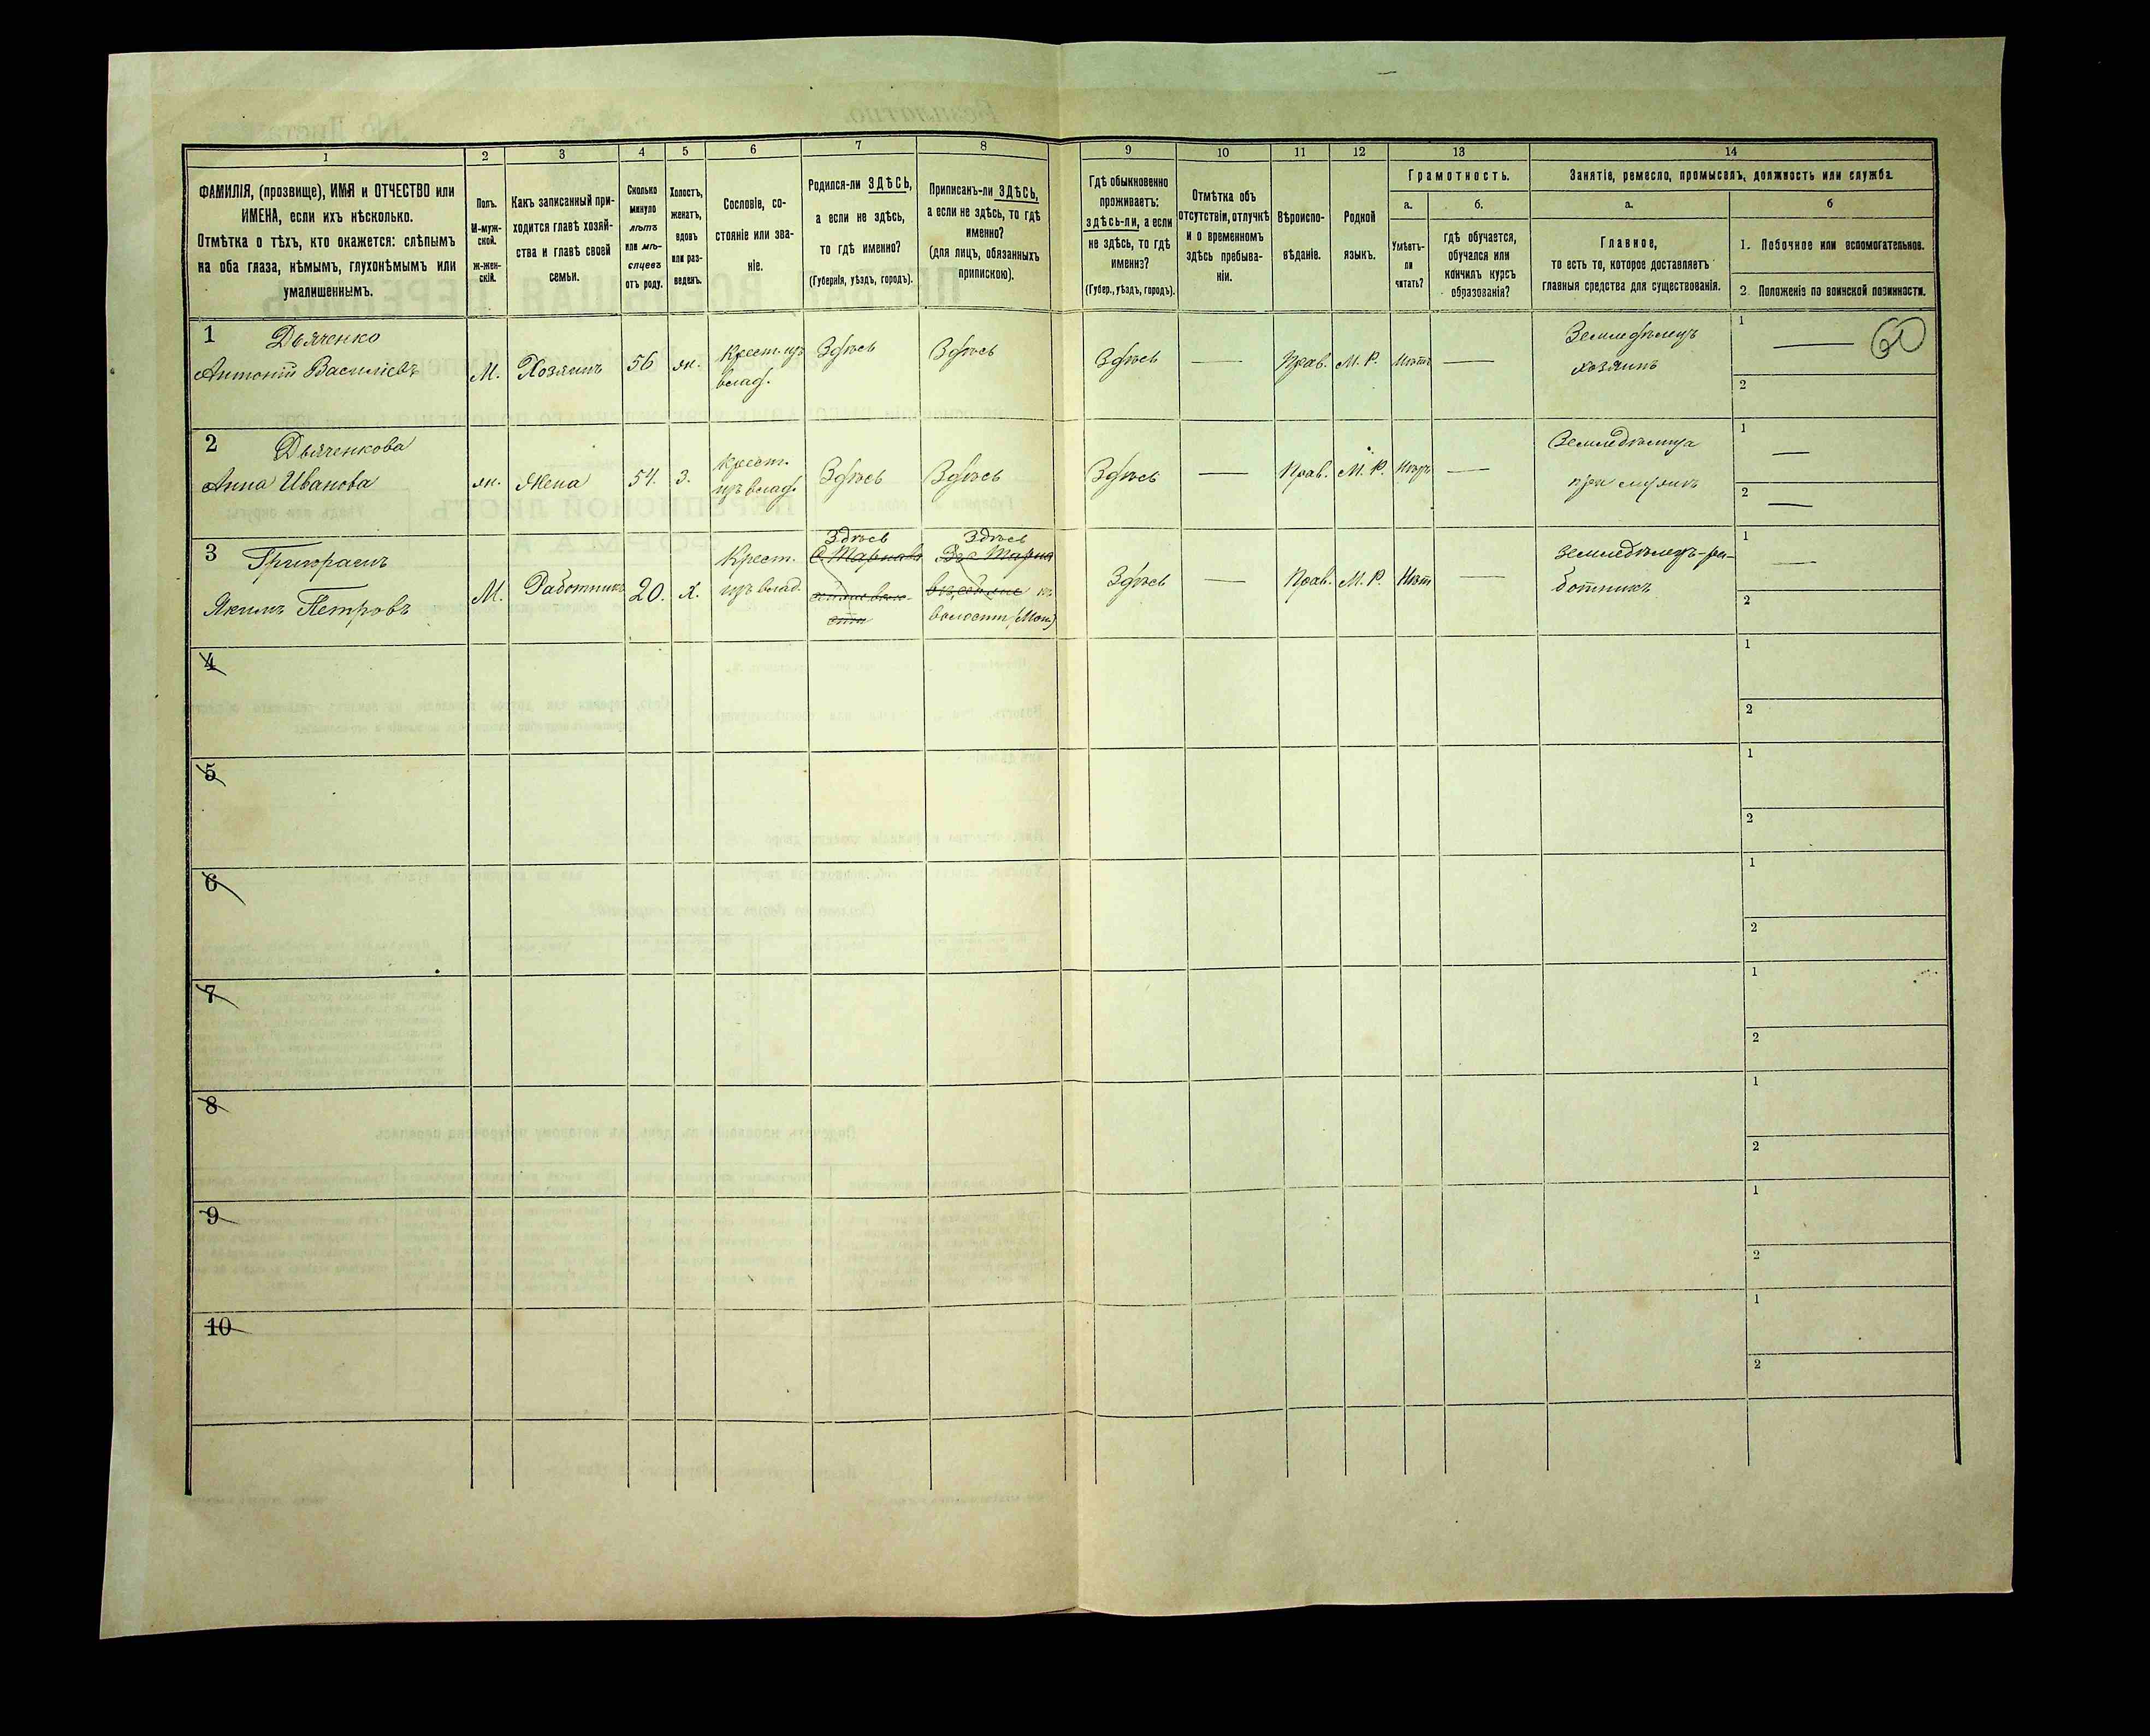 1
2
3
4
5
6
7
8
9
10
11
12
13
14
ФАМИЛІЯ, (прозвище), ИМЯ и ОТЧЕСТВО или
ИМЕНА, если ихъ нѣсколько.
Отмѣтка о тѣхъ, кто окажется: слѣпымъ
на оба глаза, нѣмымъ, глухонѣмымъ или
умалишеннымъ.
Полъ.
М-муж-
ской.
ж-жен-
скій.
Какъ записанный при-
ходится главѣ хозяй-
ства и главѣ своей
семьи.
Сколько
минуло
лѣтъ
или мѣ-
сяцевъ
отъ роду.
Холостъ,
женатъ,
вдовъ
или раз-
веденъ.
Сословіе, со-
стояніе или зва-
ніе.
Родился-ли ЗДѢСЬ,
а если не здѣсь,
то гдѣ именно?
(Губернія, уѣздъ, городъ).
Приписанъ-ли ЗДѢСЬ,
а если не здѣсь, то гдѣ
именно?
(для лицъ, обязанныхъ
припискою).
Гдѣ обыкновенно
проживаетъ:
здѣсь-ли, а если
не здѣсь, то гдѣ
именно?
(Губер., уѣздъ, городъ).
Отмѣтка объ
отсутствіи, отлучкѣ
и о временномъ
здѣсь пребыва-
ніи.
Вѣроиспо-
вѣданіе.
Родной
языкъ.
Грамотность.
а.
б.
Умѣетъ-
ли
читать?
гдѣ обучается,
обучался или
кончилъ курсъ
образованія?
Занятіе, ремесло, промыселъ, должность или служба.
а.
б
Главное,
то есть то, которое доставляетъ
главныя средства для существованія.
1. Побочное или вспомогательное.
2. Положеніе по воинской повинности.
1 Дьяченко
Антоній Василіевъ
М.
Хозяинъ
56
ж.
Крест. изъ
влад.
Здѣсь
Здѣсь
Здѣсь
Прав.
М. Р.
Нѣтъ
Земледѣлецъ
хозяинъ
1
60
2
2 Дьяченкова
Анна Иванова
ж.
Жена
54.
З.
Крест.
изъ влад.
Здѣсь
Здѣсь
Здѣсь
Прав.
М. Р.
Нѣтъ
Земледѣлица
при мужѣ
1
2
3 Григорашъ
Якимъ Петровъ
М.
Работникъ
20.
х.
Крест.
изъ влад.
Здѣсь
Здѣсь
волости
Здѣсь
Прав.
М. Р.
Нѣт
Земледѣлецъ-ра-
ботникъ
1
2
4
1
2
5
1
2
6
1
2
7
1
2
8
1
2
9
1
2
10
1
2